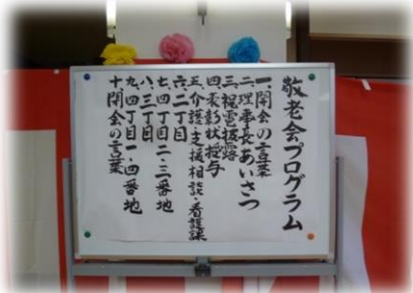 敬老会プログラム
一、開会の言葉
二、理事長あいさつ
三、祝電披露
四、表彰状授与
五、介護・支援相談・看護課
六、二丁目
七、四丁目二・三番地
八、三丁目
九、四丁目一・四番地
十、閉会の言葉